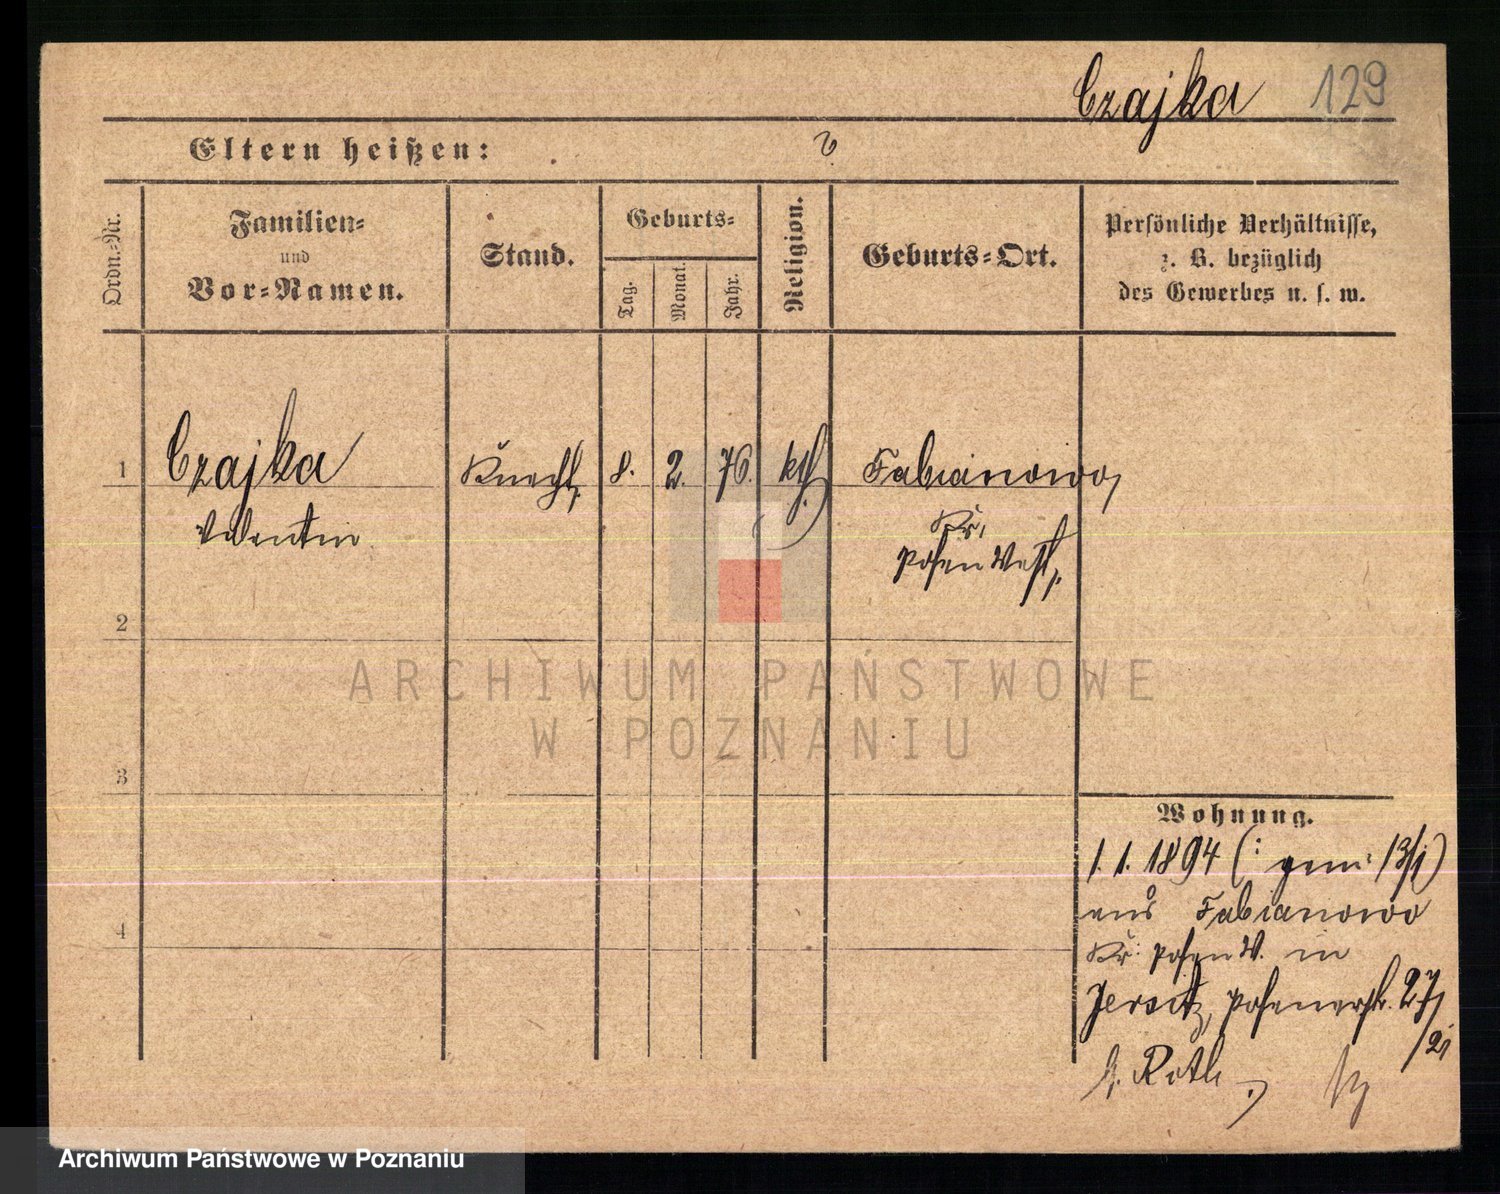 Czajka 129
Eltern heißen: ?
Ordn.-Nr.
Familien-
und
Vor-Namen.
Stand.
Geburts-
Tag.
Monat.
Jahr.
Religion.
Geburts-Ort.
Persönliche Verhältnisse,
z. B. bezüglich
des Gewerbes u. s. w.
1 Czajka Knecht 8. 2. 76. kth. Fabianowo,
Valentin
Kr.
Posen West,
2
ARCHIWUM PAŃSTWOWE
W POZNANIU
3
Wohnung.
1.1.1894 (: gem: 13/1)
4
aus Fabianowo
Kr: Posen W. in
Jersitz, Posenerstr. 27
/21
b. Roth
Archiwum Państwowe w Poznaniu